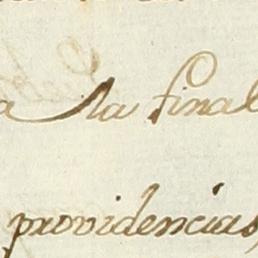 a la final
providencias,